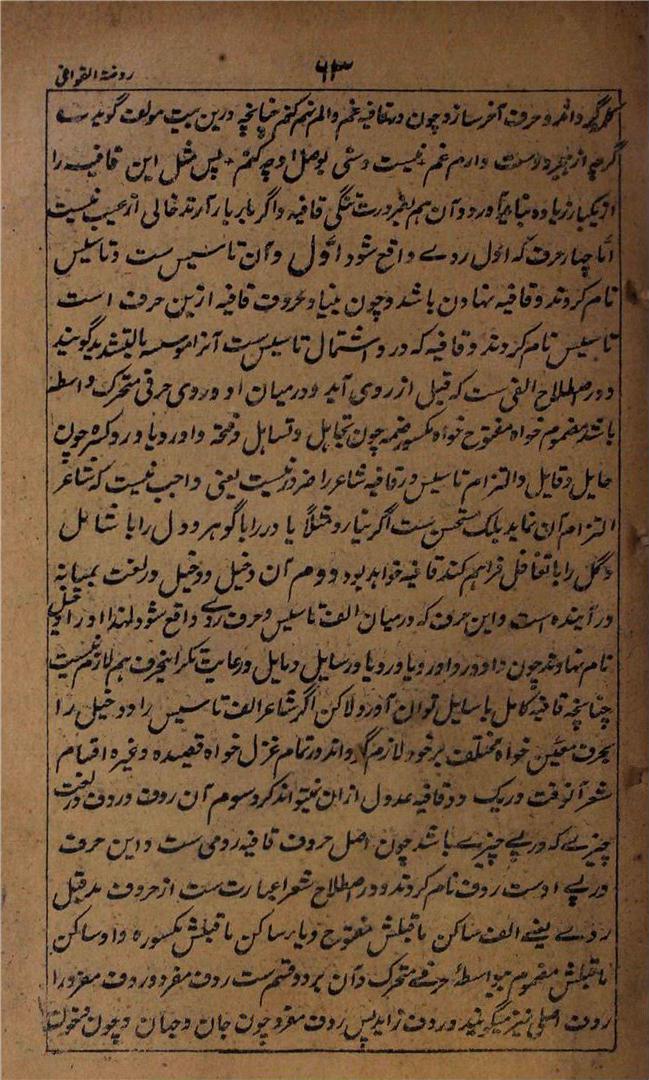 روضة القوافی
۶۳
حرف آخر سازد چون در قافیه غم والم نم کنم چنانچه درین بیت مولف گوید
گرچه از دارم غم نیست وشی بوصل او چه کنم پس مثل این قافیه را
از یکبار زیاده نباید آورد وآن هم بضرورت تنگی قافیه واگر بار بار آرند خالی از عیب نیست
امّا چهار حرف که اول روے واقع شود اوّل وآن تاسیس ست و تاسیس
نام کردند و قافیه نهادن باشد وچون بنیاد حروف قافیه ازین حرف است
تاسیس نام کردند و قافیه که درو اشتمال تاسیس ست آنرا موسسه بالتشدید گویند
و در اصطلاح الفی ست که قبل از روی آید ودرمیان او وروی حرفی متحرک واسطه
باشد مضموم خواه مفتوح خواه مکسور ضمه چون تجاهل وتساهل وفتحه داور ویاور وکسره چون
حایل وقایل والتزام تاسیس در قافیه شاعر را ضرور نیست یعنی واجب نیست که شاعر
التزام آن نماید بلکه مستحسن ست اگر نیارد مثلاً یاور را با گوهر ودل را با شامل
وگل را با تغافل فراهم کند قافیه خواهد بود دوم آن دخیل ودخیل در لغت بمیانه
درآینده است واین حرف که درمیان الف تاسیس وحرف روے واقع شود لهذا او را دخیل
نام نهادند چون داور وداور ویاور ویا ور سایل ومایل ورعایت تکرار اینحرف هم لازم نیست
چنانچه قافیه کامل با سایل توان آورد ولاکن اگر شاعر الف تاسیس را ودخیل را
بحرف معین خواه مختلف بر خود لازم گرداند در تمام غزل خواه قصیده وغیره اقسام
شعر آنوقت در یک دو قافیه عدول ازان نمیتواند کرد سوم آن ردف وردف در لغت
چیزے که در پے چیزے باشد چون اصل حروف قافیه روی ست واین حرف
در پے اوست ردف نام کردند ودر اصطلاح شعرا عبارت ست از حروف مد قبل
روے یعنے الف ساکن ماقبلش مفتوح ویاء ساکن ماقبلش مکسوره واو ساکن
ماقبلش مضموم بیواسطهٔ حرفے متحرک وآن بر دو قسم ست ردف مفرد وردف مفرد را
ردف اصلی نیز میگویند وردف زاید پس ردف مفرد چون جان وجهان وچون